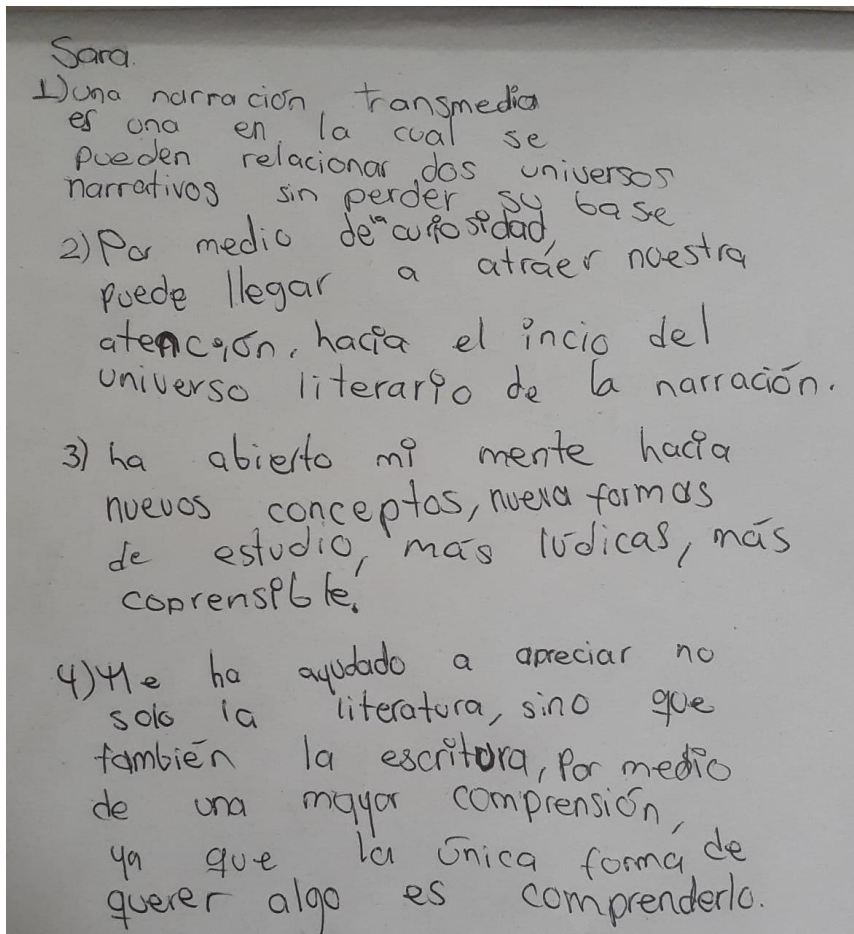 Sara.
1) una narración transmedia
es una en la cual se
pueden relacionar dos universos
narrativos sin perder su base
2) Por medio de la curiosidad,
puede llegar a atráer nuestra
atención, hacia el incio del
universo literario de la narración.
3) ha abierto mi mente hacia
nuevos conceptos, nueva formas
de estudio, más lúdicas, más
coprensible.
4) Me ha ayudado a apreciar no
solo la literatura, sino que
también la escritura, Por medio
de una mayor comprensión,
ya que la única forma de
querer algo es comprenderlo.